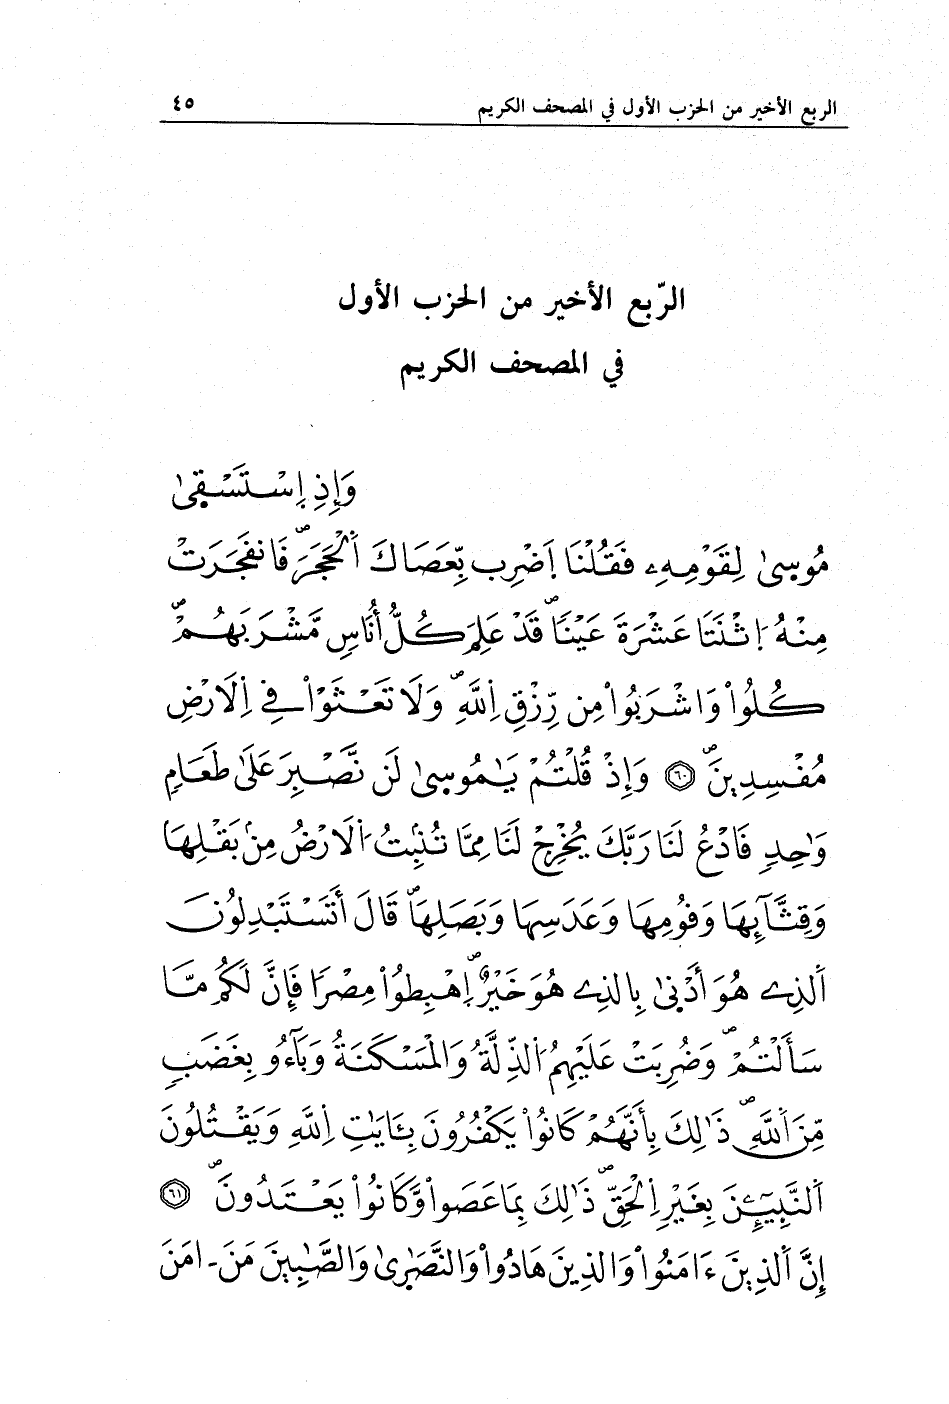 الربع الأخير من الحزب الأول في المصحف الكريم ٤٥
الرّبع الأخير من الحزب الأول
في المصحف الكريم
وَإِذِ اِ۪سْتَسْقِىٰ
مُوسِىٰ لِقَوْمِهِۦ فَقُلْنَا اَ۪ضْرِب بِّعَصَاكَ اَ۬لْحَجَرَۖ فَانفَجَرَتْ
مِنْهُ اُ۪ثْنَتَا عَشْرَةَ عَيْناٗۖ قَدْ عَلِمَ كُلُّ أُنَاسٖ مَّشْرَبَهُمْۖ
كُلُواْ وَاشْرَبُواْ مِن رِّزْقِ اِ۬للَّهِۖ وَلَا تَعْثَوْاْ فِے اِ۬لَارْضِ
مُفْسِدِينَۖ ٦٠ وَإِذْ قُلْتُمْ يَٰمُوسِىٰ لَن نَّصْبِرَ عَلَىٰ طَعَامٖ
وَٰحِدٖ فَادْعُ لَنَا رَبَّكَ يُخْرِجْ لَنَا مِمَّا تُنۢبِتُ اُ۬لَارْضُ مِنۢ بَقْلِهَا
وَقِثَّآئِهَا وَفُومِهَا وَعَدَسِهَا وَبَصَلِهَاۖ قَالَ أَتَسْتَبْدِلُونَ
اَ۬لذِے هُوَ أَدْنىٰ بِالذِے هُوَ خَيْرٌۖ اِ۪هْبِطُواْ مِصْراٗ فَإِنَّ لَكُم مَّا
سَأَلْتُمْۖ وَضُرِبَتْ عَلَيْهِمُ اُ۬لذِّلَّةُ وَالْمَسْكَنَةُ وَبَآءُو بِغَضَبٖ
مِّنَ اَ۬للَّهِۖ ذَٰلِكَ بِأَنَّهُمْ كَانُواْ يَكْفُرُونَ بِـَٔايَٰتِ اِ۬للَّهِ وَيَقْتُلُونَ
اَ۬لنَّبِيٓـِٕينَ بِغَيْرِ اِ۬لْحَقِّۖ ذَٰلِكَ بِمَا عَصَواْ وَّكَانُواْ يَعْتَدُونَۖ ٦١
إِنَّ اَ۬لذِينَ ءَامَنُواْ وَالذِينَ هَادُواْ وَالنَّصَٰرِىٰ وَالصَّٰبِينَ مَنَ ـ امَنَ